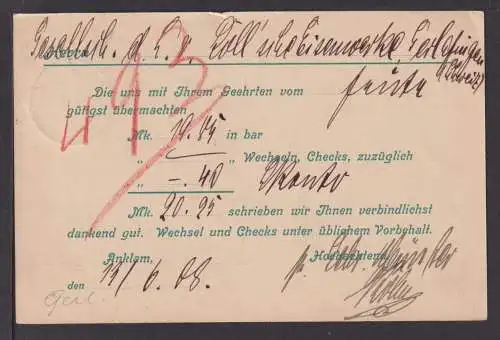 Gesellsch. d. L. v. Roll'sche Eisenwerke, Gerlafingen
(Schweiz)
Die uns mit Ihrem Geehrten vom heute
gütigst übermachten
493
Mk. 19.85 in bar
„ „ Wechseln, Checks, zuzüglich
„ -.40 Skonto
Mk. 20.25 schrieben wir Ihnen verbindlichst
dankend gut. Wechsel und Checks unter üblichem Vorbehalt.
Anklam, Hochachtend
den 15/6.08.
Gerl.